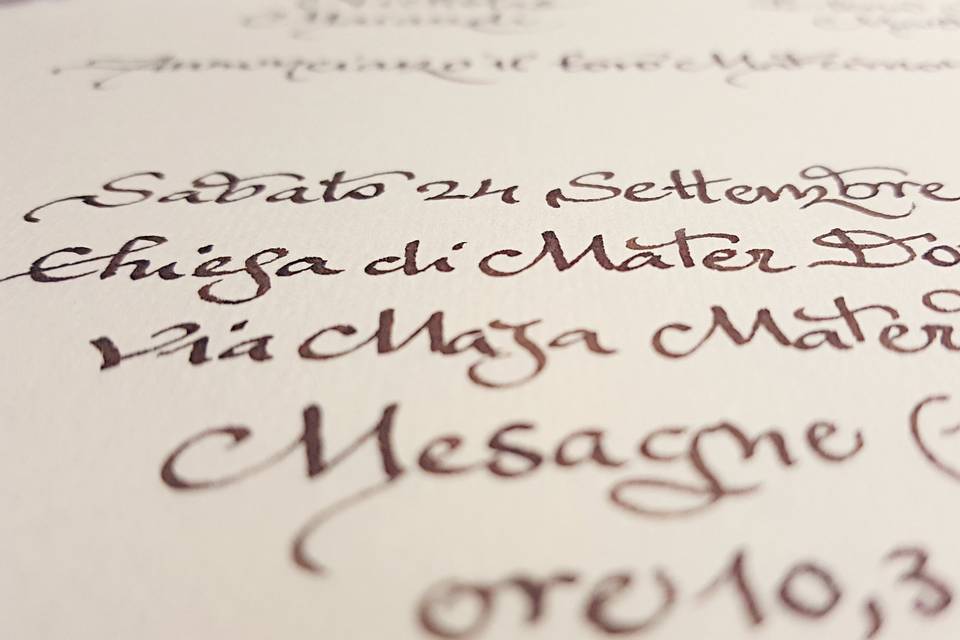 Annunciano il loro Matrimo
Sabato 24 Settembre
Chiesa di Mater Do
Via Maja Mater
Mesagne (
ore 10,3